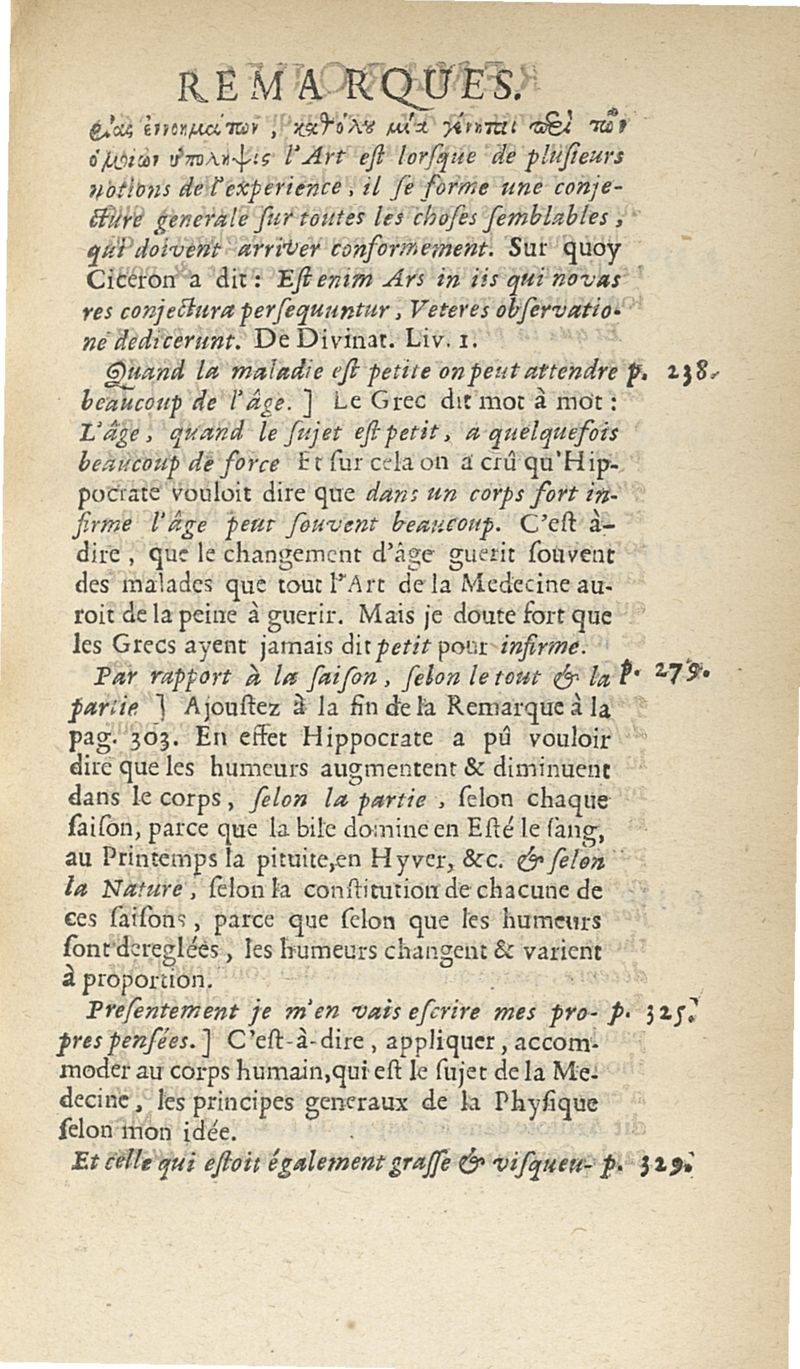 REMARQUES.
ρίας ἐννοημάτων, καθόλου μία γένηται περὶ τῶν
ὁμοίων ὑπόληψις l'Art eſt lorſque de pluſieurs
notions de l'experience, il ſe forme une conje-
cture generale ſur toutes les choſes ſemblables,
qui doivent arriver conformement. Sur quoy
Ciceron a dit : Eſt enim Ars in iis qui novas
res conjectura perſequuntur, Veteres obſervatio-
ne dedicerunt. De Divinat. Liv. 1.
Quand la maladie eſt petite on peut attendre p. 238.
beaucoup de l'âge. ] Le Grec dit mot à mot :
L'âge, quand le ſujet eſt petit, a quelquefois
beaucoup de force Et ſur cela on a crû qu'Hip-
pocrate vouloit dire que dans un corps fort in-
firme l'âge peut ſouvent beaucoup. C'eſt à-
dire, que le changement d'âge guerit ſouvent
des malades que tout l'Art de la Medecine au-
roit de la peine à guerir. Mais je doute fort que
les Grecs ayent jamais dit petit pour infirme.
Par rapport à la ſaiſon, ſelon le tout & la p. 279.
partie ] Ajouſtez à la fin de la Remarque à la
pag. 303. En effet Hippocrate a pû vouloir
dire que les humeurs augmentent & diminuent
dans le corps, ſelon la partie, ſelon chaque
ſaiſon, parce que la bile domine en Eſté le ſang,
au Printemps la pituite, en Hyver, &c. & ſelon
la Nature, ſelon la conſtitution de chacune de
ces ſaiſons, parce que ſelon que les humeurs
ſont dereglées, les humeurs changent & varient
à proportion.
Preſentement je m'en vais eſcrire mes pro- p. 325.
pres penſées. ] C'eſt-à-dire, appliquer, accom-
moder au corps humain, qui eſt le ſujet de la Me-
decine, les principes generaux de la Phyſique
ſelon mon idée.
Et celle qui eſtoit également graſſe & viſqueu- p. 329.